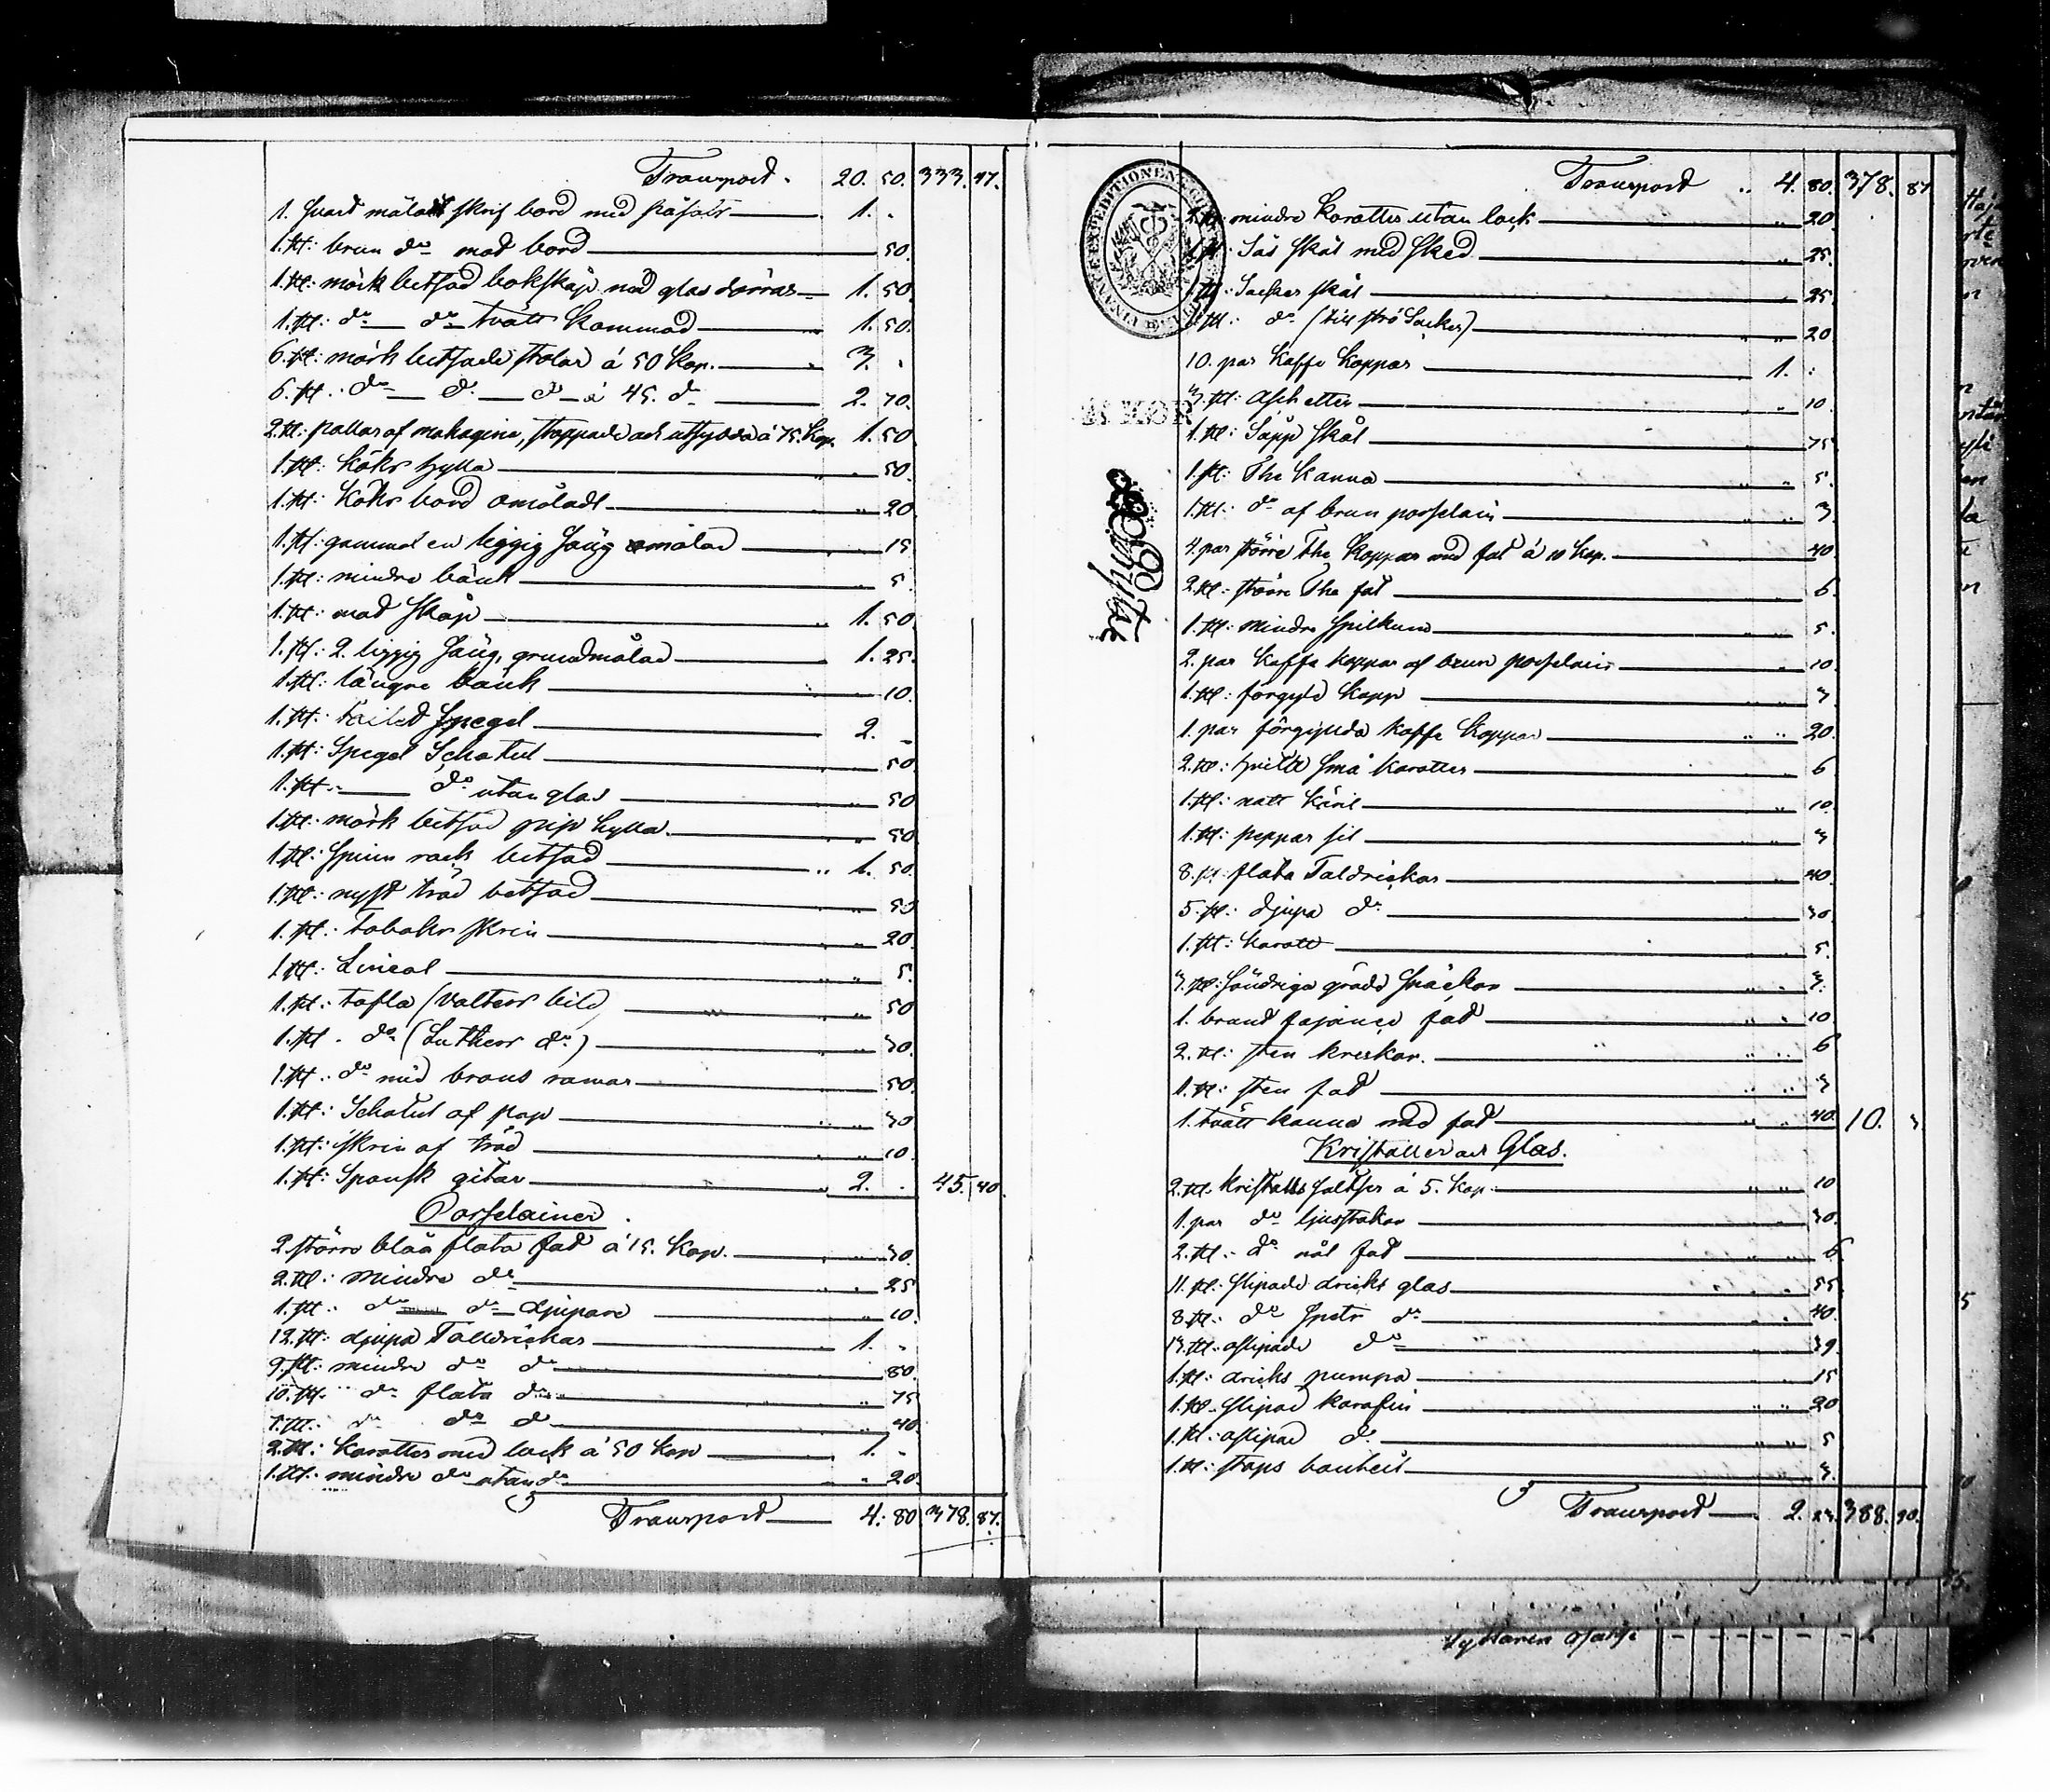 Transport. 20. 50. 333. 47.
1. svart måladt skrif bord med påsats 1. -
1. st: brun do mat bord 50.
1. st: mörk betsad bokskåp med glas dörrar 1. 50.
1. st: do do tvätt kommod 1. 50.
6. st: mörk betsade stolar á 50 kop. 3. -
6. st. do do do á 45. do 2. 70.
2. st: pallar af mahagine, stoppade och utsydda á 75. kop. 1. 50
1. st: köks hylla 50.
1. st: köks bord omåladt 20
1. st: gammal en liggig säng omålad 15
1. st: mindre bänk 5.
1. st: mat skåp 1. 50.
1. st: 2. liggig säng, grundmålad 1. 25.
1. st: längre bänk 10.
1. st: spegel 2. -
1. st: Spegel Schatul 50.
1. st: do utan glas 50
1. st: mörk betsad pip hylla. 50
1. st: spinn rock betsad 1. 50.
1. st: nyst träd betsad 50
1. st: tobaks skrin 20.
1. st: Lineal 5.
1. st: tafla (Valters bild) 50
1. st. do (Luthers do) 30.
1. st: do med brons ramar 50.
1. st: Schatul af pap 30
1. st: skrin af träd 10.
1. st: Spansk gitar 2. - 45. 40.
Porselainer.
2. större blåa flata fat á 15. kop. 30.
2. st: mindre do 25
1. st: do do djupare 10.
12. st: djupa Talldrickar 1. -
9. st: mindre do do 80.
10. st. do flata do 75
st: do do do 40.
2. st: karotter med lock á 50 kop 1. -
1. st: mindre do utan do 20.
Transport 4. 80. 378. 87.
Transport 4. 80. 378. 87
EXPEDITIONEN
st: mindre karotter utan lock 20
st: Sås skål med sked 25.
st: Socker skål 25
st: do (till strö Socker) 20
10. par kaffe koppar 1. -
3. st: aschetter 10
1. st: Såpp skål 75
1. st: The kanna 5.
1. st: do af brun porslain 3
4. par större The koppar med fat á 10 kop. 40
2. st: större The fat 6.
1. st: mindre spilkum 5.
2. par kaffe koppar af brun porslain 10
1. st: förgyld kopp 3
1. par förgylda kaffe koppar 20.
2. st: hvita små karotter 6
1. st: natt käril 10.
1. st: peppar sil 3
8. st flata Taldrickar 40.
5. st: djupa do 30.
1. st: karott 5.
3. st: söndriga grädd snäckor 3.
1. brand fajance fat 10
2. st: sten kruskor. 6
1. st: sten fat 3
1. tvätt kanna med fat 40. 10. 3
Kristaller och Glas.
2. st. kristalls saltser á 5. kop. 10
1. par do ljusstakar 30.
2. st: do nål fat 6.
11. st: slipade dricks glas 55.
8. st: do spets do 40.
13. st: oslipade do 39
1. st: dricks pumpa 15
1. st. slipad karafin 20
1. st: oslipad do 5
1. st: stops bouteil 3.
Transport 2. 23. 388. 90.